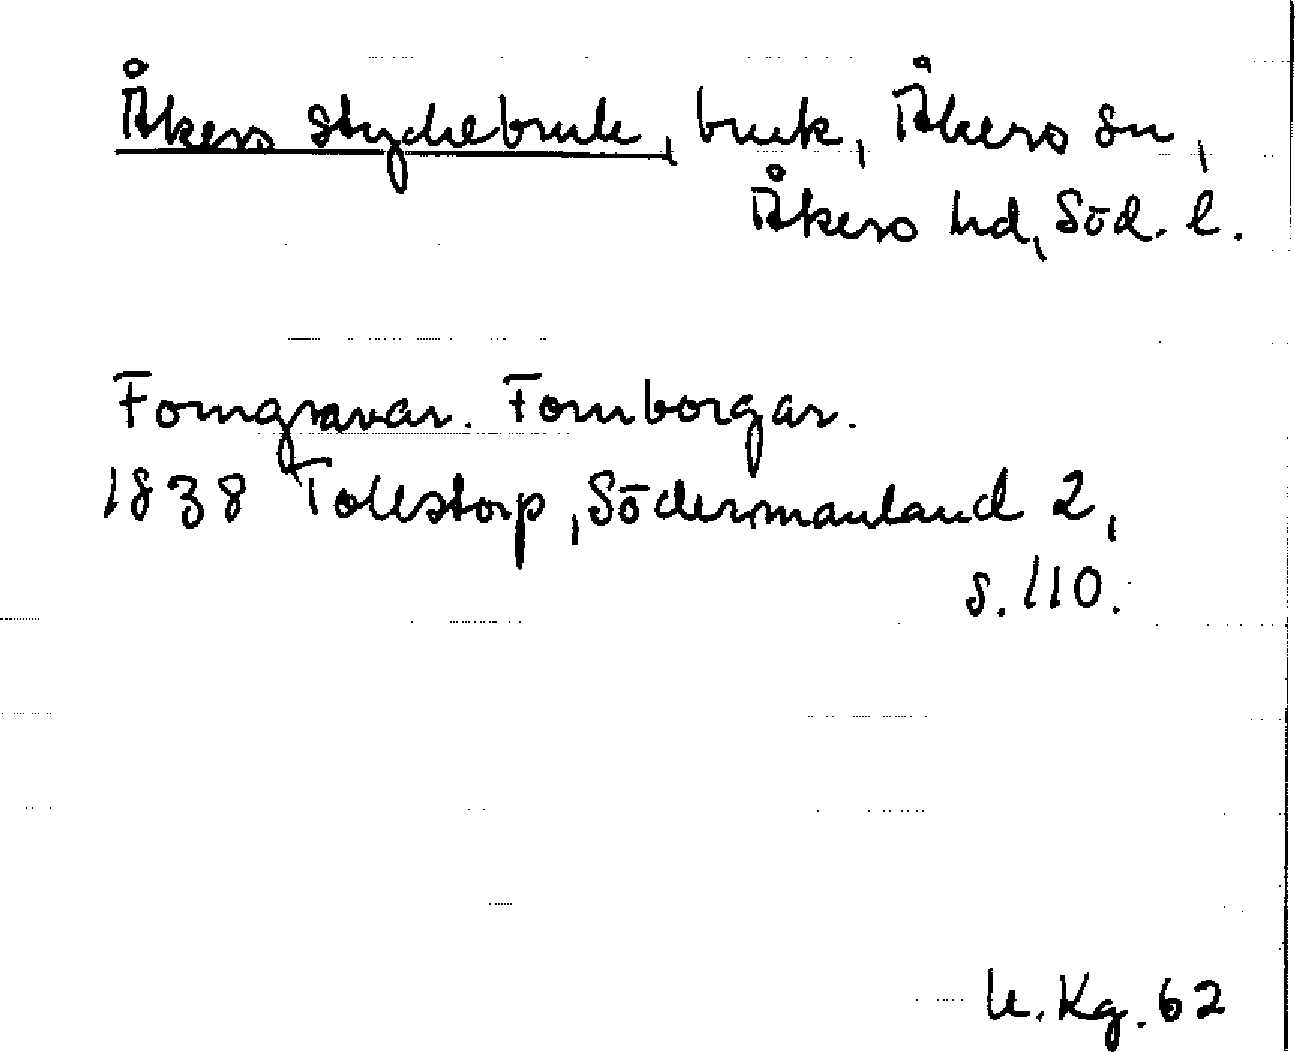 Åkers styckebruk, bruk, Åkers sn,
Åkers hd, Söd. l.
Forngravar. Fornborgar.
1838 Tollstorp, Södermanland 2,
s. 110.
K. Kg. 62